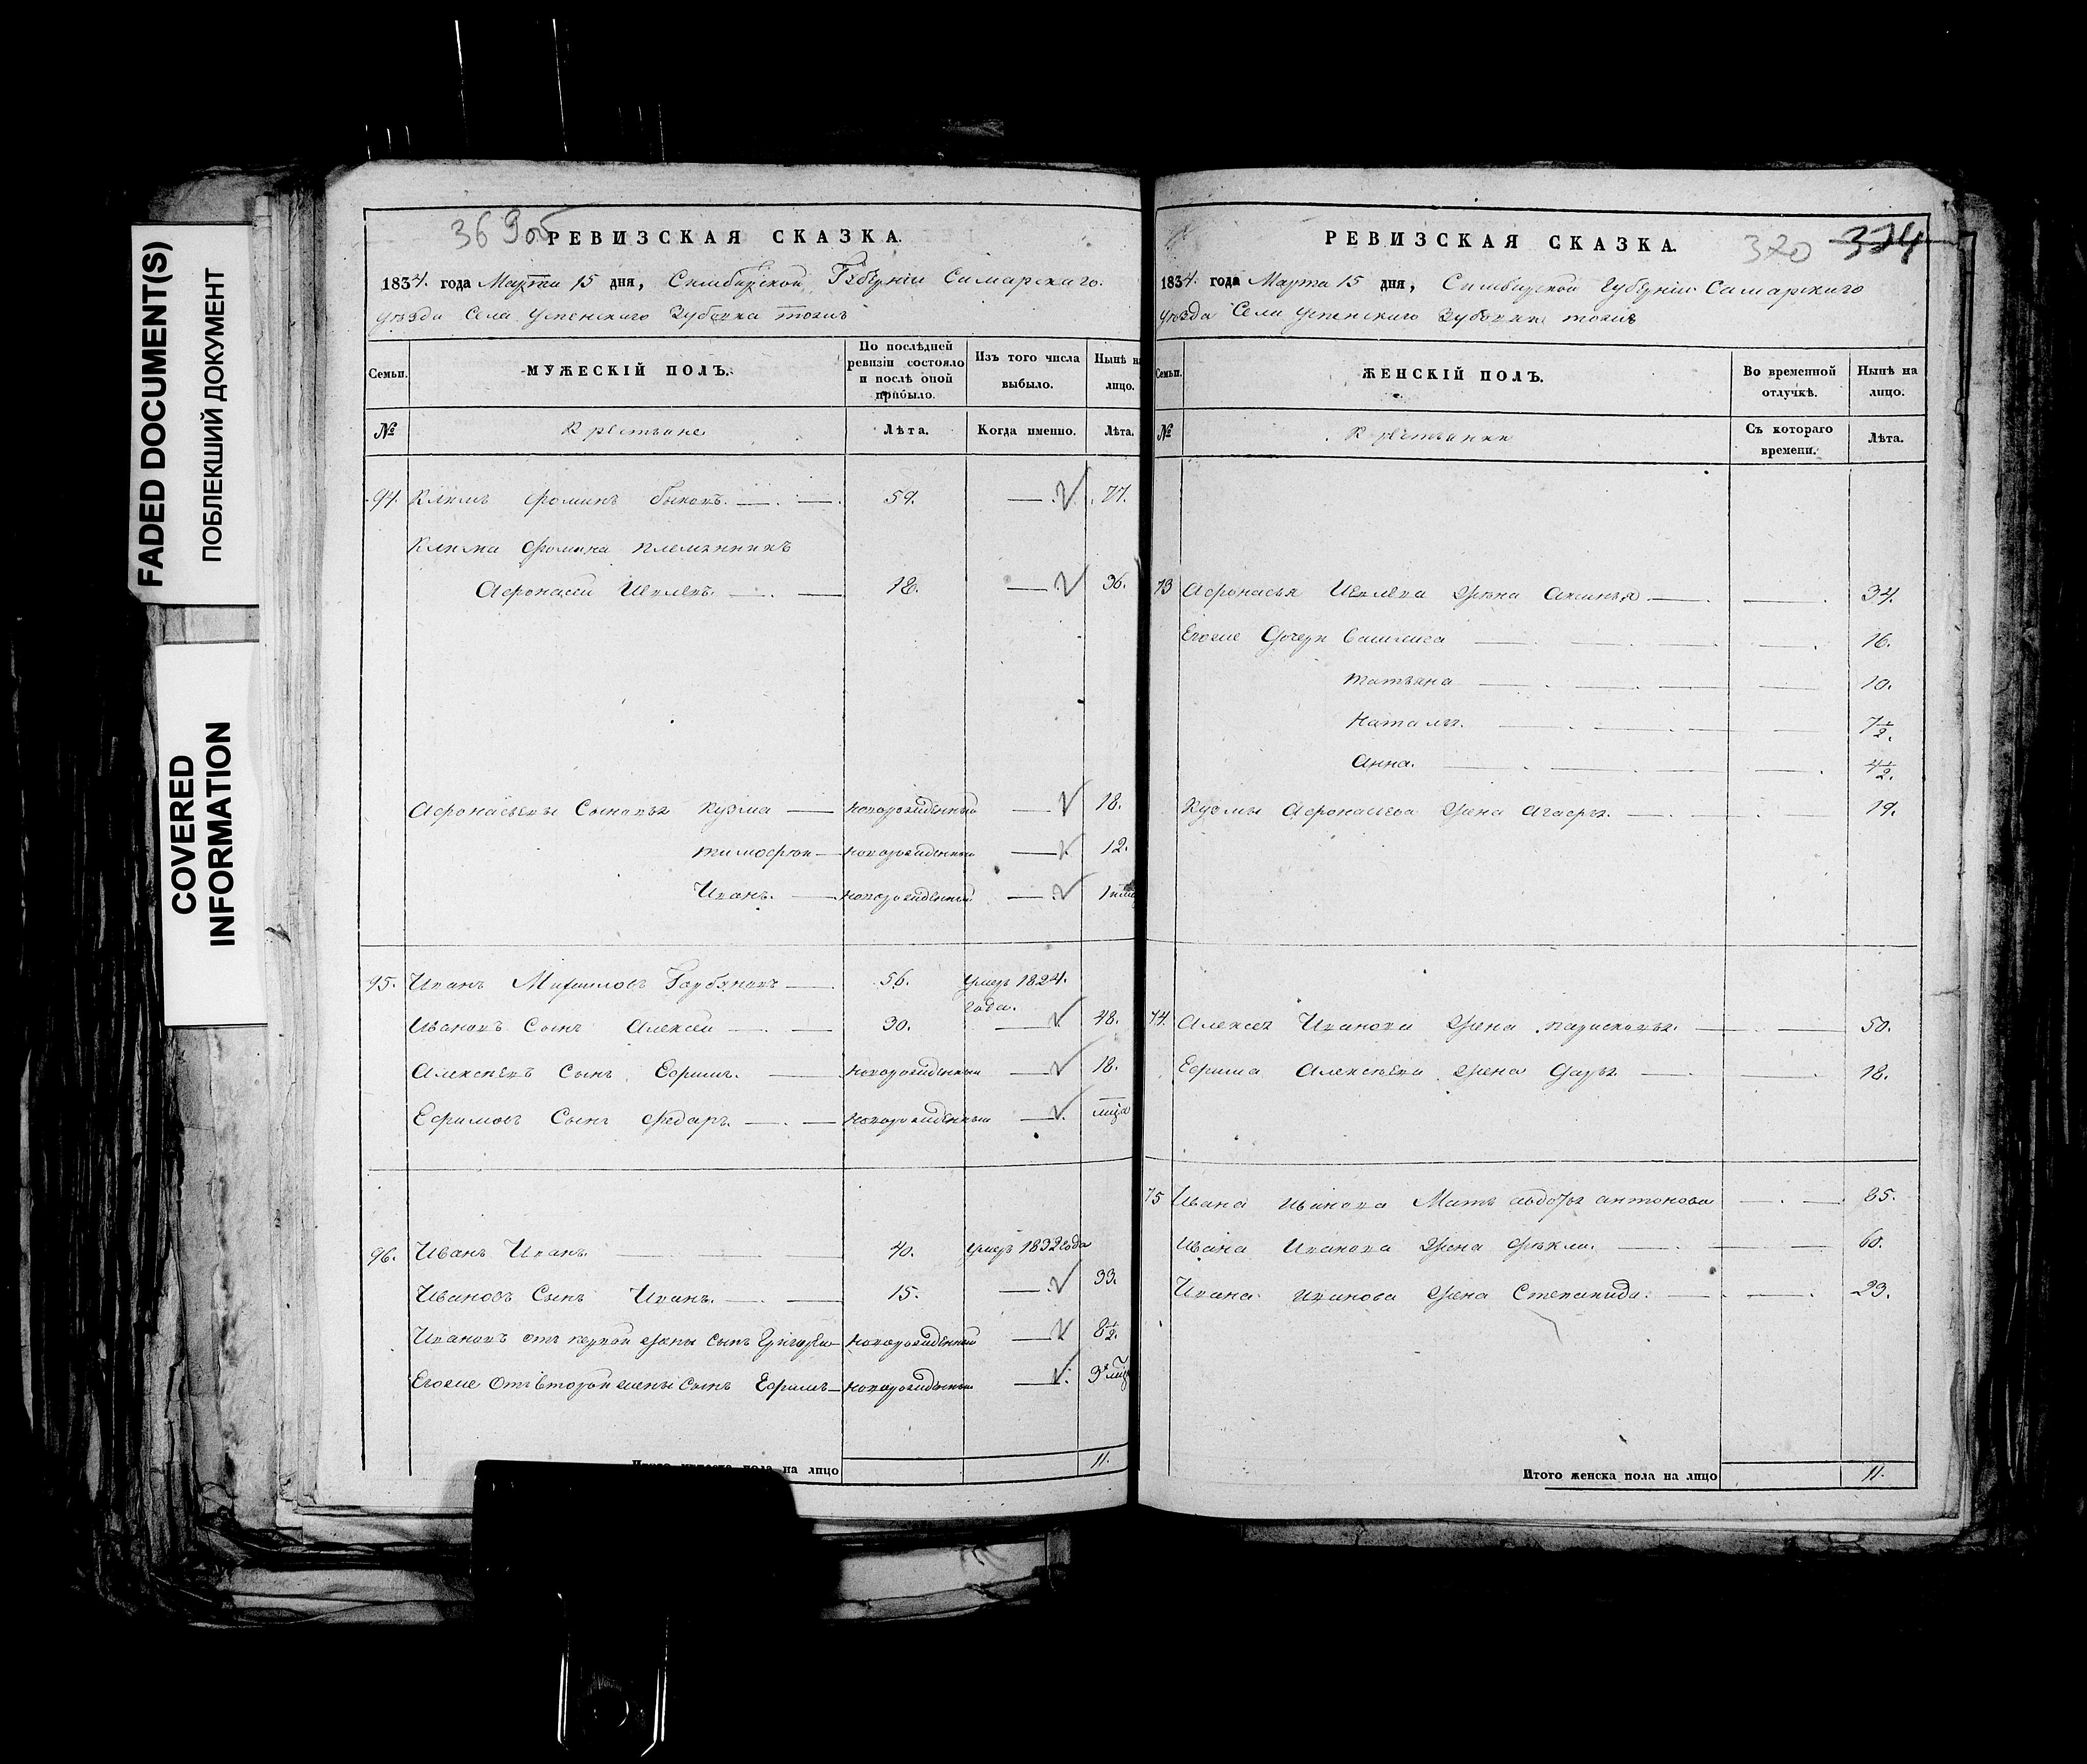 FADED DOCUMENT(S)
ПОБЛЕКШИЙ ДОКУМЕНТ
COVERED
INFORMATION
369об
РЕВИЗСКАЯ СКАЗКА.
1834. года Марта 15 дня, Симбирской Губѣрніи Самарскаго.
уѣзда Села Успенскаго Зубовка тожъ
Семьи.
МУЖЕСКІЙ ПОЛЪ.
По послѣдней ревизіи состояло и послѣ оной прибыло.
Изъ того числа выбыло.
Нынѣ на лицо.
№
Крѣстьяне
Лѣта.
Когда именно.
Лѣта.
94. Климъ Фоминъ Быковъ. 59. 77.
Клима Фомина племянникъ
Афонасей Ивлевъ. 18. 36.
Афонасьевы Сыновья Кузма новорожденный 18.
Тимофей новорожденный 12.
Иванъ. новорожденный 1
95. Иванъ Михаиловъ Горбуновъ 56. умеръ 1824. года.
Ивановъ Сынъ Алексей 30. 48.
Алексеевъ сынъ Ефимъ. новорожденный 18.
Ефимовъ Сынъ Федаръ. новорожденный
96. Иванъ Иванъ 40. умеръ 1832 года
Ивановъ Сынъ Иванъ. 15. 33.
Ивановъ отъ первой жены сынъ Григорей новорожденный 8½.
Егоже отъ второй жены сынъ Ефимъ новорожденный 3
на лицо 11.
РЕВИЗСКАЯ СКАЗКА.
370 374
1834. года Марта 15 дня, Симбирской Губѣрніи Самарскаго
уѣзда Села Успенскаго Зубовка тожъ
Семьи.
ЖЕНСКІЙ ПОЛЪ.
Во временной отлучкѣ.
Нынѣ на лицо.
№
Крѣстьянки
Съ котораго времени.
Лѣта.
73 Афонасья Ивлева жена Аксинья 34.
Егоже Дочери Василиса 16.
Татьяна 10.
Наталья. 7½.
Анна. 4½.
Кузмы Афонасьева жена Агафья. 19.
74. Алексея Иванова жена Парасковья. 50.
Ефима Алексеева жена Дарья 18.
75 Ивана Иванова Мать авдотья антонова 85.
Ивана Иванова жена Фекла. 60.
Ивана Иванова жена Степанида. 23.
Итого женска пола на лицо 11.